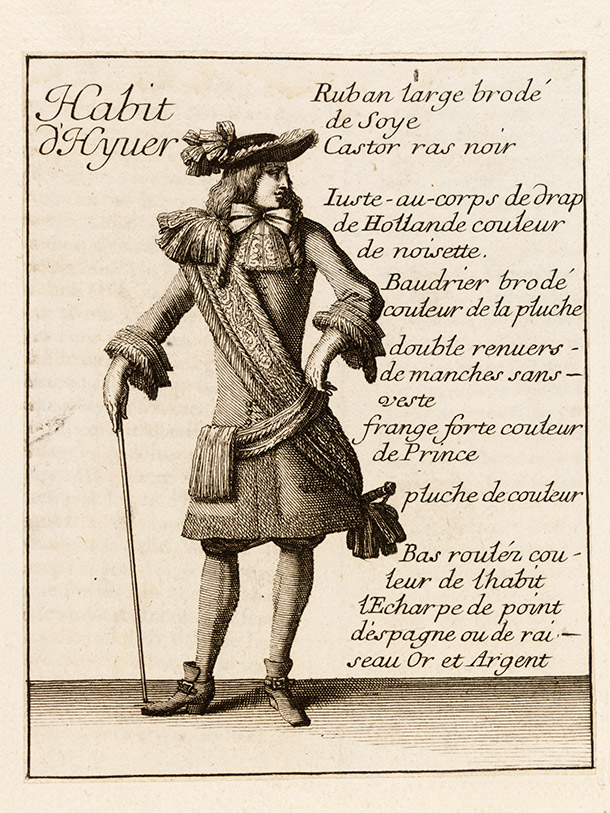 Habit
d'Hyuer
Ruban large brodé
de Soye
Castor ras noir
Iuste-au-corps de drap
de Hollande couleur
de noisette.
Baudrier brodé
couleur de la pluche
double renuers-
de manches sans-
veste
frange forte couleur
de Prince
pluche de couleur
Bas rouléz cou-
leur de lhabit
l'Echarpe de point
d'espagne ou de rai-
seau Or et Argent